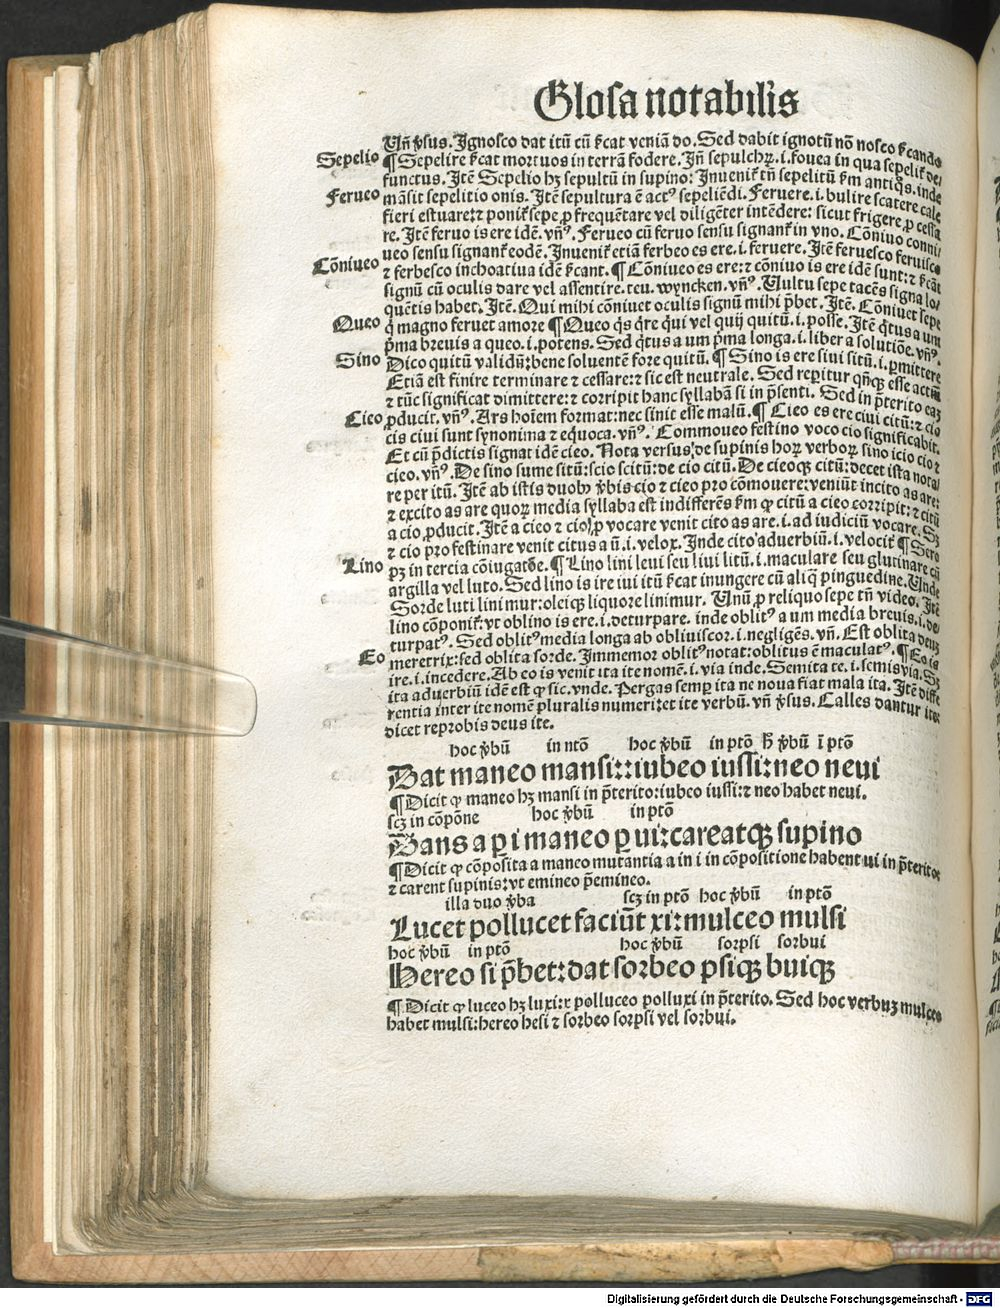 Glosa notabilis
Uñ ꝟsus. Ignosco dat itū cū ẜcat veniā do. Sed dabit ignotū nō nosco ẜcando
Sepelio ¶ Sepelire ẜcat mortuos in terrā fodere. Iñ sepulchꝝ .i. fouea in qua sepelit᷑ de/
functus. Itē Sepelio hꝫ sepultū in supino: Inuenit᷑ tñ sepelitū ẜm antiq̄s. inde
Ferueo māsit sepelitio onis. Itē sepultura ē actꝰ sepeliēdi. Feruere .i. bulire scatere cale
fieri estuare: ⁊ ponit᷑ sepe ꝓ frequētare vel diligēter intēdere: sicut frigere ꝓ cessa
re. Itē feruo is ere idē. vñꝰ. Ferueo cū feruo sensu signant᷑ in vno. Cōniuo conni/
ueo sensu signant᷑ eodē. Inuenit᷑ etiā ferbeo es ere .i. feruere. Itē feruesco feruisco
Cōniueo ⁊ ferbesco inchoatiua idē ẜcant. ¶ Cōniueo es ere: ⁊ cōniuo is ere idē sunt: ⁊ ẜcāt
signū cū oculis dare vel assentire. teu. wyncken. vñꝰ. Uultu sepe tacēs signa lo/
quētis habet. Itē. Qui mihi cōniuet oculis signū mihi p̄bet. Itē. Cōniuet sepe
Queo q̇ magno feruet amore ¶ Queo q̄s q̄re q̇ui vel quij quitū .i. posse. Itē q̇tus a um
p̄ma breuis a queo .i. potens. Sed q̇tus a um p̄ma longa .i. liber a solutiōe. vñꝰ.
Sino Dico quitū validū: bene soluentē fore quitū. ¶ Sino is ere siui sitū .i. ꝑmittere
Etiā est finire terminare ⁊ cessare: ⁊ sic est neutrale. Sed reꝑitur qñqꝫ esse actiū
⁊ tūc significat dimittere: ⁊ corripit hanc syllabā si in p̄senti. Sed in p̄terito eaꝫ
Cieo ꝓducit. vñꝰ. Ars hoīem format: nec sinit esse malū. ¶ Cieo es ere ciui citū: ⁊ cio
cis ciui sunt synonima ⁊ equoca. vñꝰ. Commoueo festino voco cio significabit.
Et cū p̄dictis signat idē cieo. Nota versus de supinis hoꝝ verboꝝ sino icio cio ⁊
cieo. vñꝰ. De sino sume sitū: scio scitū: de cio citū. De cieoqꝫ citū: decet ista nota/
re per itū. Itē ab istis duobꝰ ꝟbis cio ⁊ cieo pro cōmouere: veniūt incito as are:
⁊ excito as are quoꝝ media syllaba est indifferēs ẜm ꝙ citū a cieo corripit: ⁊ citū
a cio ꝓducit. Itē a cieo ⁊ cio ꝓ vocare venit cito as are .i. ad iudiciū vocare. Sꝫ
⁊ cio pro festinare venit citus a ū .i. velox. Inde cito aduerbiū .i. velocit᷑ ¶ Sero
Lino pꝫ in tercia cōiugatōe. ¶ Lino lini leui seu liui litū .i. maculare seu glutinare cū
argilla vel luto. Sed lino is ire iui itū ẜcat inungere cū aliq̄ pinguedine. Unde
Sorde luti linimur: oleiqꝫ liquore linimur. Unū ꝓ reliquo sepe tñ video. Itē
lino cōponit᷑: vt oblino is ere .i. deturpare. inde oblitꝰ a um media breuis .i. de/
turpatꝰ. Sed oblitꝰ media longa ab obliuiscor .i. negligēs. vñ. Est oblita deuꝫ
Eo meretrix: sed oblita sorde. Immemor oblitꝰ notat: oblitus ē maculatꝰ. ¶ Eo is
ire .i. incedere. Ab eo is venit ita ite nomē .i. via inde. Semita te .i. semis via. Sꝫ
ita aduerbiū idē est ꝙ sic. vnde. Pergas semꝑ ita ne noua fiat mala ita. Itē diffe
rentia inter ite nomē pluralis numeri: et ite verbū. vñ ꝟsus. Calles dantur ite:
dicet reprobis deus ite.
hoc ꝟbū in ptō hoc ꝟbū in ptō h̄ ꝟbū ī ptō
Dat maneo mansi: : iubeo iussi: neo neui
¶ Dicit ꝙ maneo hꝫ mansi in p̄terito: iubeo iussi: ⁊ neo habet neui.
scꝫ in cōpōne hoc ꝟbū in ptō
Dans a ꝑ i maneo ꝑ ui: careatqꝫ supino
¶ Dicit ꝙ cōposita a maneo mutantia a in i in cōpositione habent ui in p̄terito:
⁊ carent supinis: vt emineo p̄emineo.
illa duo ꝟba scꝫ in ptō hoc ꝟbū in ptō
Lucet pollucet faciūt xi: mulceo mulsi
hoc ꝟbū in ptō hoc ꝟbū sorpsi sorbui
Hereo si p̄bet: dat sorbeo psiqꝫ buiqꝫ
¶ Dicit ꝙ luceo hꝫ luxi: ⁊ polluceo polluxi in p̄terito. Sed hoc verbuꝫ mulceo
habet mulsi: hereo hesi ⁊ sorbeo sorpsi vel sorbui.
Digitalisierung gefördert durch die Deutsche Forschungsgemeinschaft - DFG